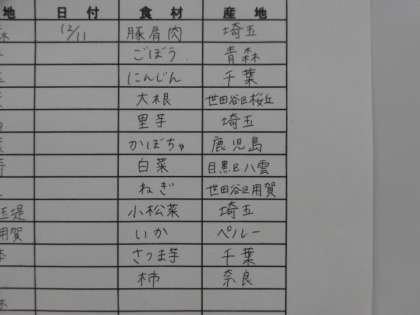 地 日付 食材 産地
12/11 豚肩肉 埼玉
ごぼう 青森
にんじん 千葉
大根 世田谷区桜丘
里芋 埼玉
かぼちゃ 鹿児島
白菜 目黒区八雲
ねぎ 世田谷区用賀
玉堤 小松菜 埼玉
用賀 いか ペルー
さつま芋 千葉
柿 奈良